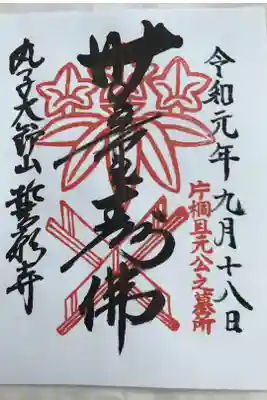 令和元年九月十八日
片桐且元公之墓所
無量寿佛
丸子大鈩山 誓願寺